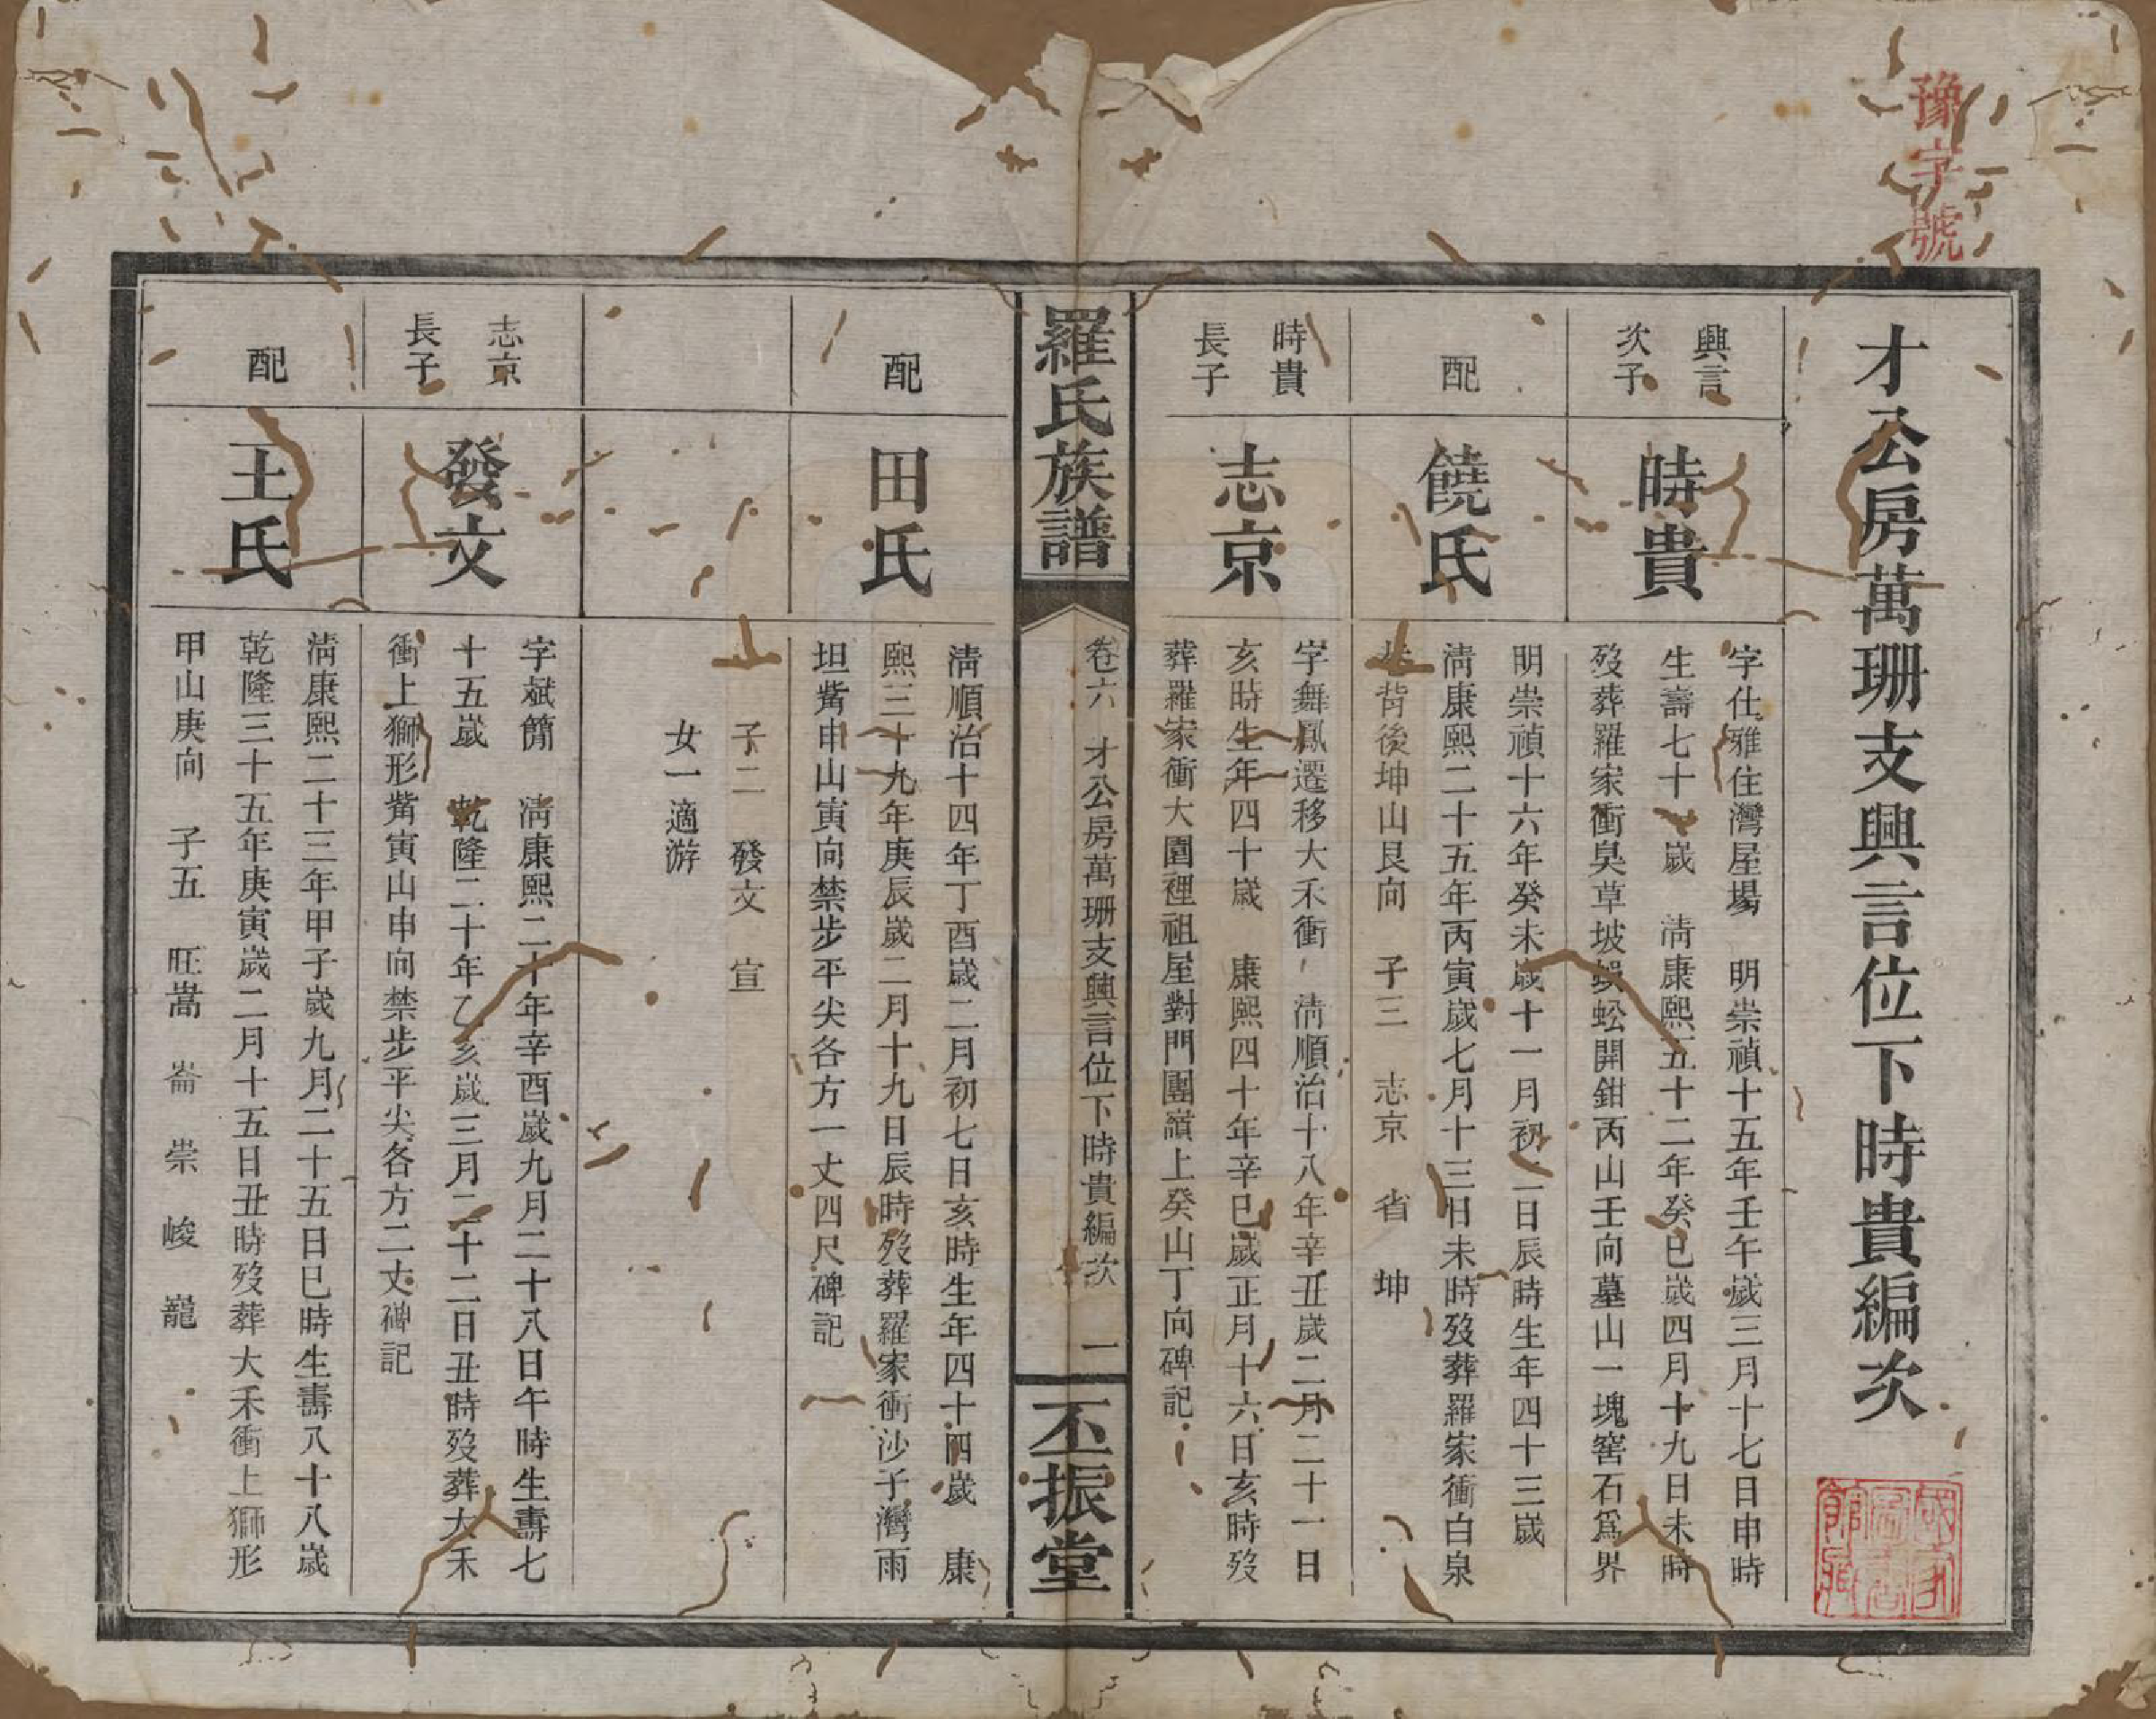 豫字號
才公房萬珊支興言位下時貴編次
興言
次子
時貴
字仕雅住灣屋場 明崇禎十五年壬午歲三月十七日申時
生壽七十 歲 淸康熙五十二年癸巳歲四月十九日未時
歿葬羅家衝臭草坡蜈蚣開鉗丙山壬向墓山一塊窖石爲界
配
饒氏
明崇禎十六年癸未歲十一月初二日辰時生年四十三歲
淸康熙二十五年丙寅歲七月十三日未時歿葬羅家衝白泉
背後坤山艮向 子三 志京 省 坤
時貴
長子
志京
字舞鳳遷移大禾衝 淸順治十八年辛丑歲二月二十一日
亥時生年四十歲 康熙四十年辛巳歲正月十六日亥時歿
葬羅家衝大園裡祖屋對門團嶺上癸山丁向碑記
羅氏族譜
卷六 才公房萬珊支興言位下時貴編次 一
丕振堂
配
田氏
淸順治十四年丁酉歲二月初七日亥時生年四十四歲 康
熙三十九年庚辰歲二月十九日辰時歿葬羅家衝沙子灣雨
坦觜申山寅向禁步平尖各方一丈四尺碑記
子二 發文 宣
女一適游
志京
長子
發文
字斌簡 淸康熙二十年辛酉歲九月二十八日午時生壽七
十五歲 乾隆二十年乙亥歲三月二十二日丑時歿葬大禾
衝上獅形觜寅山申向禁步平尖各方二丈碑記
配
王氏
淸康熙二十三年甲子歲九月二十五日巳時生壽八十八歲
乾隆三十五年庚寅歲二月十五日丑時歿葬大禾衝上獅形
甲山庚向 子五 旺嵩 崙 崇 峻 巃
國家圖書館藏